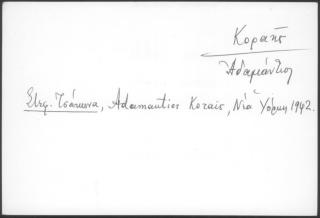 Κοραῆς
Ἀδαμάντιος
Στεφ. Τσάκωνα, Adamantios Korais, Νέα Ὑόρκη 1942.